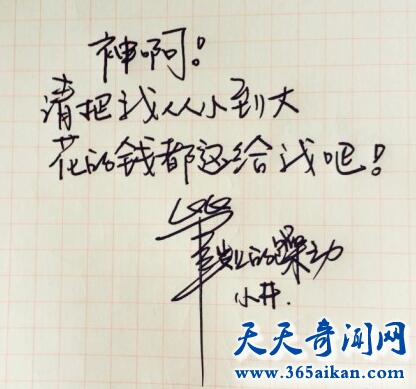 神啊!
请把我从小到大
花的钱都还给我吧!
毕业的躁动
小井.
天天奇闻网
www.365aikan.com